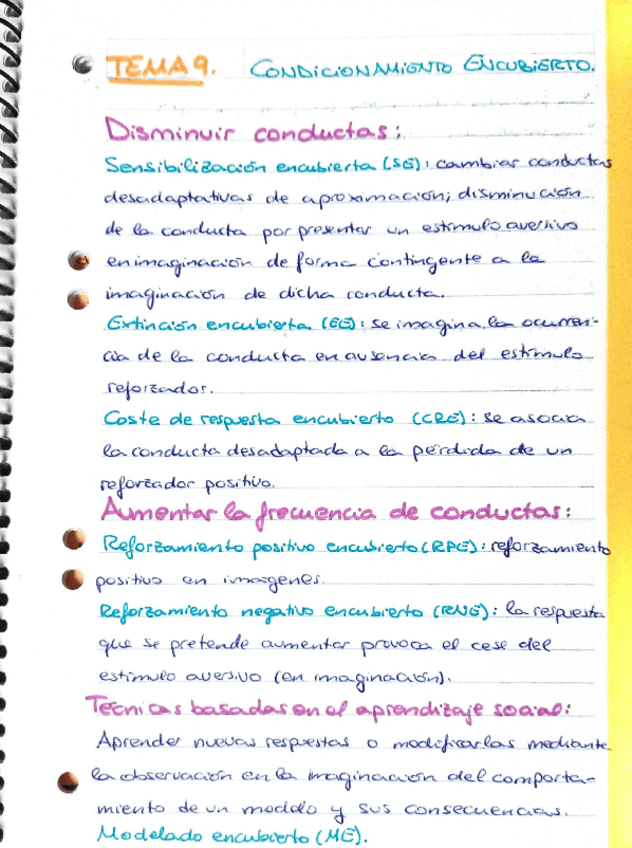 TEMA 9. CONDICIONAMIENTO ENCUBIERTO.
Disminuir conductas:
Sensibilización encubierta (SE): cambiar conductas
desadaptativas de aproximación; disminución
de la conducta por presentar un estímulo aversivo
en imaginación de forma contingente a la
imaginación de dicha conducta.
Extinción encubierta (EE): se imagina la ocurren-
cia de la conducta en ausencia del estímulo
reforzador.
Coste de respuesta encubierto (CRE): se asocia
la conducta desadaptada a la pérdida de un
reforzador positivo.
Aumentar la frecuencia de conductas:
Reforzamiento positivo encubierto (RPE): reforzamiento
positivo en imágenes.
Reforzamiento negativo encubierto (RNE): la respuesta
que se pretende aumentar provoca el cese del
estímulo aversivo (en imaginación).
Técnicas basadas en el aprendizaje social:
Aprender nuevas respuestas o modificarlas mediante
la observación en la imaginación del comporta-
miento de un modelo y sus consecuencias.
Modelado encubierto (ME).